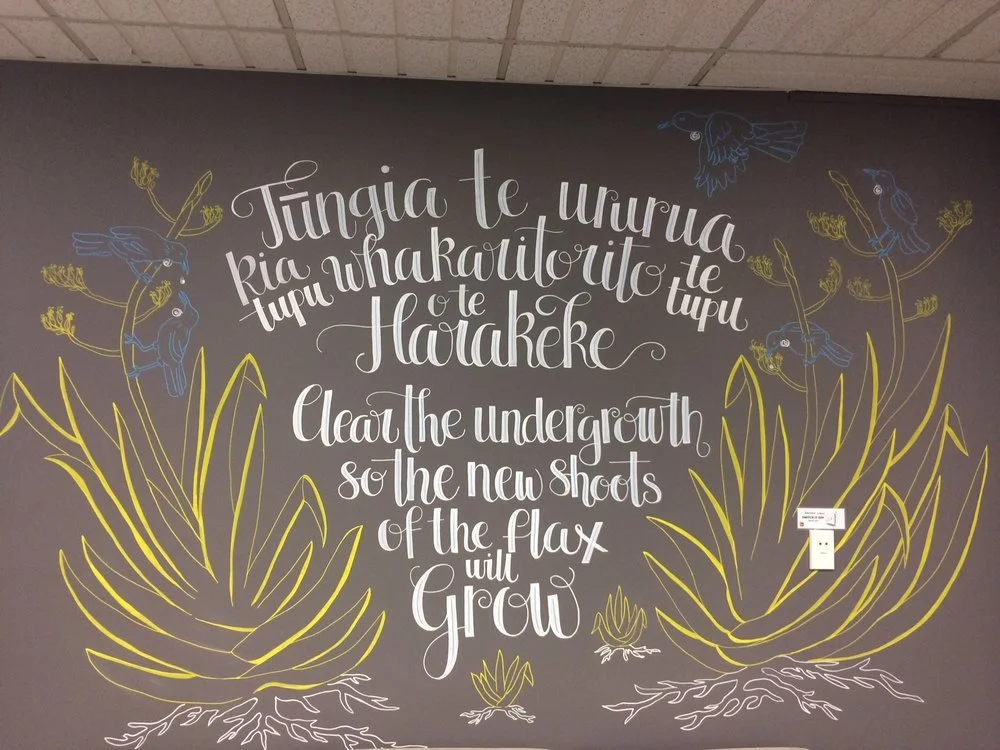 Tūngia te ururua
kia whakaritorito te
tupu o te tupu
Harakeke
Clear the undergrowth
so the new shoots
of the flax
will
Grow